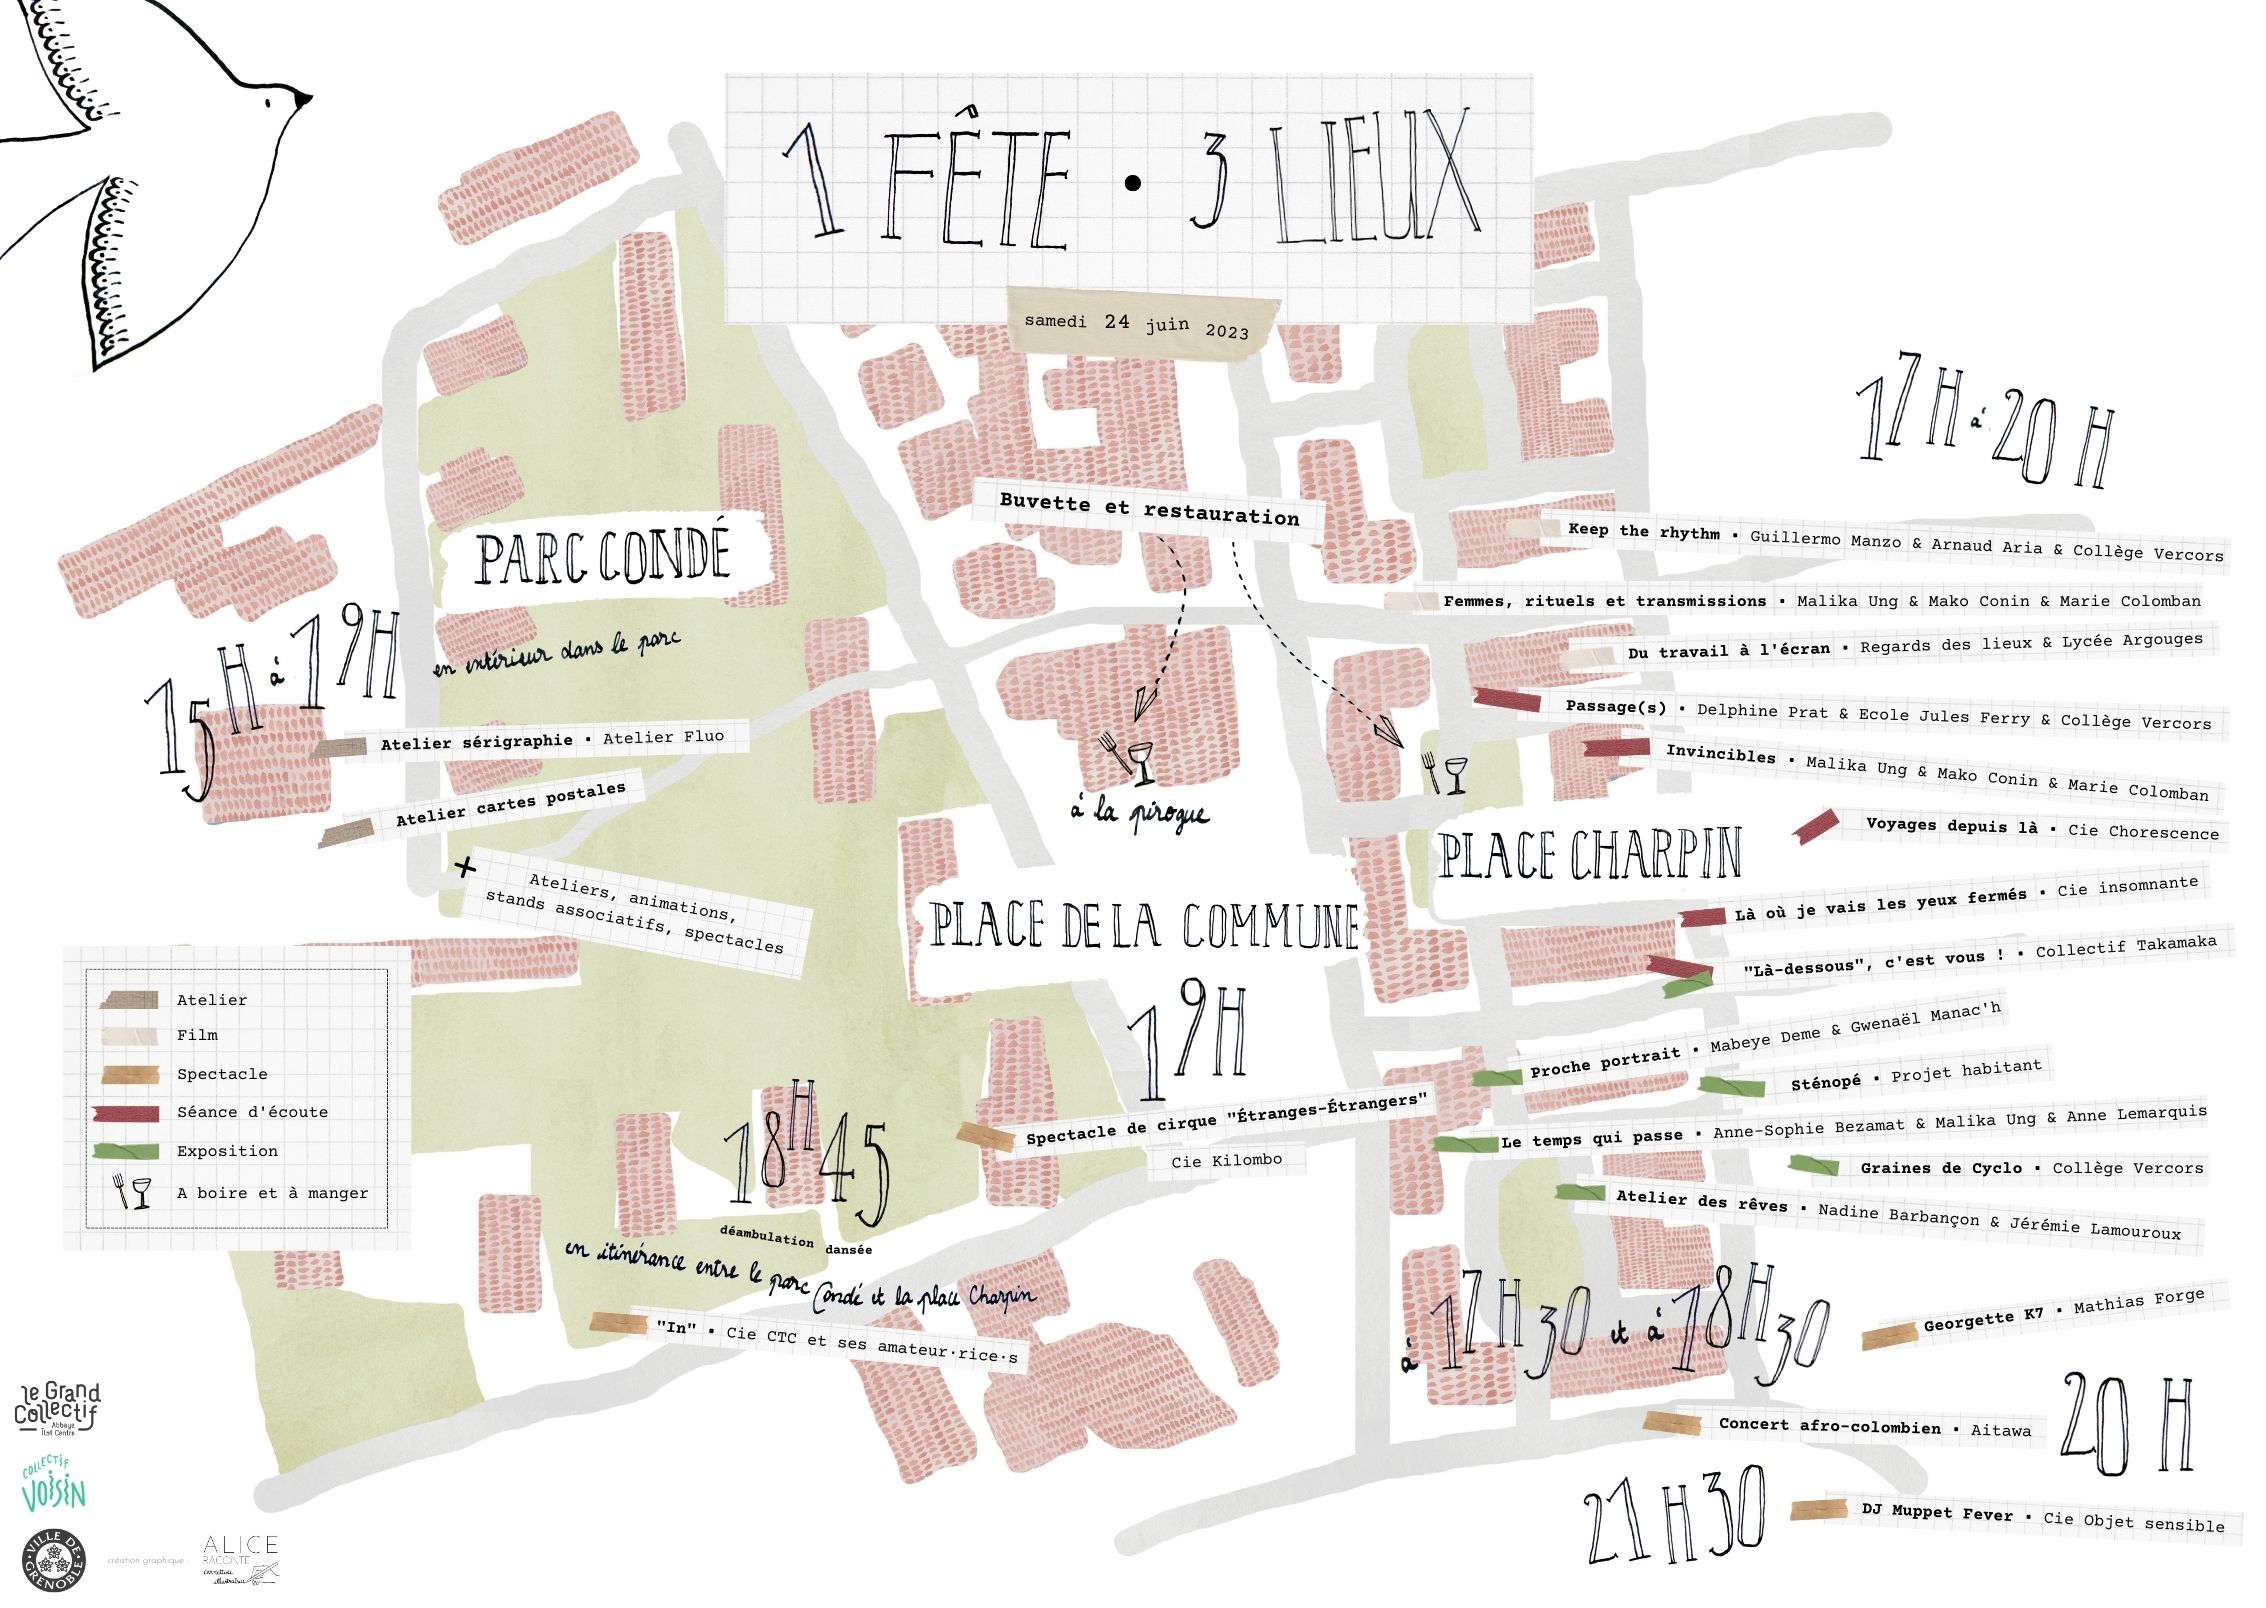 1 FÊTE • 3 LIEUX
samedi 24 juin 2023
PARC CONDÉ
15H à 19H
en extérieur dans le parc
Atelier sérigraphie • Atelier Fluo
Atelier cartes postales
+
Ateliers, animations,
stands associatifs, spectacles
Buvette et restauration
à la pirogue
PLACE DE LA COMMUNE
19H
Spectacle de cirque "Étranges-Étrangers"
Cie Kilombo
18H45
déambulation dansée
en itinérance entre le parc Condé et la place Charpin
"In" • Cie CTC et ses amateur·rice·s
PLACE CHARPIN
17H à 20H
Keep the rhythm • Guillermo Manzo & Arnaud Aria & Collège Vercors
Femmes, rituels et transmissions • Malika Ung & Mako Conin & Marie Colomban
Du travail à l'écran • Regards des lieux & Lycée Argouges
Passage(s) • Delphine Prat & Ecole Jules Ferry & Collège Vercors
Invincibles • Malika Ung & Mako Conin & Marie Colomban
Voyages depuis là • Cie Chorescence
Là où je vais les yeux fermés • Cie insomnante
"Là-dessous", c'est vous ! • Collectif Takamaka
Proche portrait • Mabeye Deme & Gwenaël Manac'h
Sténopé • Projet habitant
Le temps qui passe • Anne-Sophie Bezamat & Malika Ung & Anne Lemarquis
Graines de Cyclo • Collège Vercors
Atelier des rêves • Nadine Barbançon & Jérémie Lamouroux
à 17H30 et à 18H30
Georgette K7 • Mathias Forge
20H
Concert afro-colombien • Aitawa
21H30
DJ Muppet Fever • Cie Objet sensible
Atelier
Film
Spectacle
Séance d'écoute
Exposition
A boire et à manger
le Grand
Collectif
Abbaye
Îlot Centre
COLLECTIF
VOISIN
VILLE DE GRENOBLE
création graphique :
ALICE
RACONTE